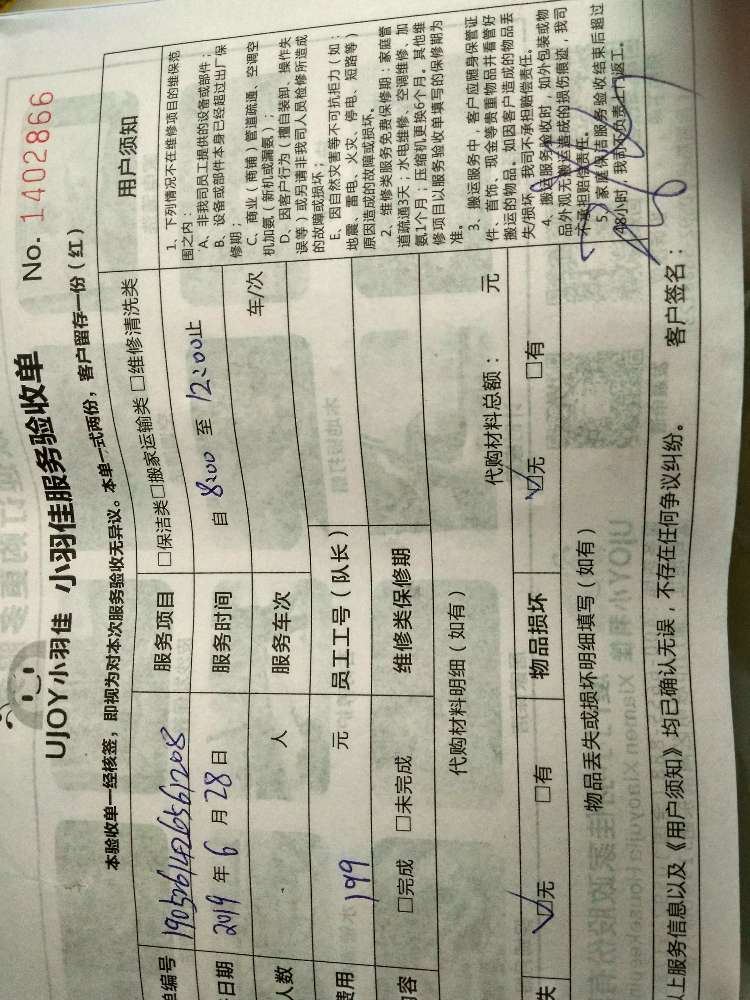 UJOY小羽佳 小羽佳服务验收单 No. 1402866
本验收单一经核签，即视为对本次服务验收无异议。本单一式两份，客户留存一份（红）
单编号 1905261426561208 服务项目 □保洁类□搬家运输类 □维修清洗类
日期 2019 年 6 月 28 日 服务时间 自 8:00 至 12:00止
人数 人 服务车次 车/次
费用 199 元 员工工号（队长）
内容 □完成 □未完成 维修类保修期
代购材料明细（如有） 代购材料总额： 元
失 ☑无 □有 物品损坏 ☑无 □有
物品丢失或损坏明细填写（如有）
上服务信息以及《用户须知》均已确认无误，不存在任何争议纠纷。 客户签名：
用户须知
1、下列情况不在维修项目的维保范
围之内：
A、非我司员工提供的设备或部件；
B、设备或部件本身已经超过出厂保
修期；
C、商业（商铺）管道疏通、空调空
机加氨（新机或漏氨）；
D、因客户行为（擅自装卸、操作失
误等）或另请非我司人员检修所造成
的故障或损坏；
E、因自然灾害等不可抗拒力（如：
地震、雷电、火灾、停电、短路等）
原因造成的故障或损坏。
2、维修类服务免费保修期：家庭管
道疏通3天；水电维修、空调维修、加
氨1个月；压缩机更换6个月。其他维
修项目以服务验收单填写的保修期为
准。
3、搬运服务中，客户应随身保管证
件、首饰、现金等贵重物品并看管好
搬运的物品。如因客户造成的物品丢
失/损坏，我司不承担赔偿责任。
4、搬运服务验收时，如外包装或物
品外观无搬运造成的损伤痕迹，我司
不承担赔偿责任。
5、家庭保洁服务验收结束后超过
48小时，我司不负责上门返工。